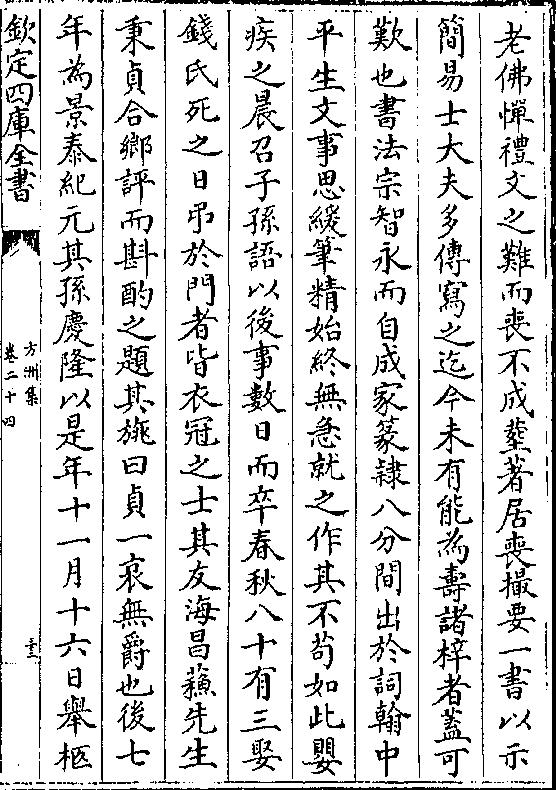 老佛憚禮文之難而喪不成塟著居喪撮要一書以示
簡易士大夫多傳寫之迄今未有能為壽諸梓者蓋可
歎也書法宗智永而自成家篆隸八分間出於詞翰中
平生文事思緩筆精始終無急就之作其不苟如此嬰
疾之晨召子孫語以後事數日而卒春秋八十有三娶
錢氏死之日弔於門者皆衣冠之士其友海昌蘓先生
秉貞合鄉評而斟酌之題其旐曰貞一哀無爵也後七
年為景泰紀元其孫慶隆以是年十一月十六日舉柩
欽定四庫全書
方洲集
卷二十四
三三